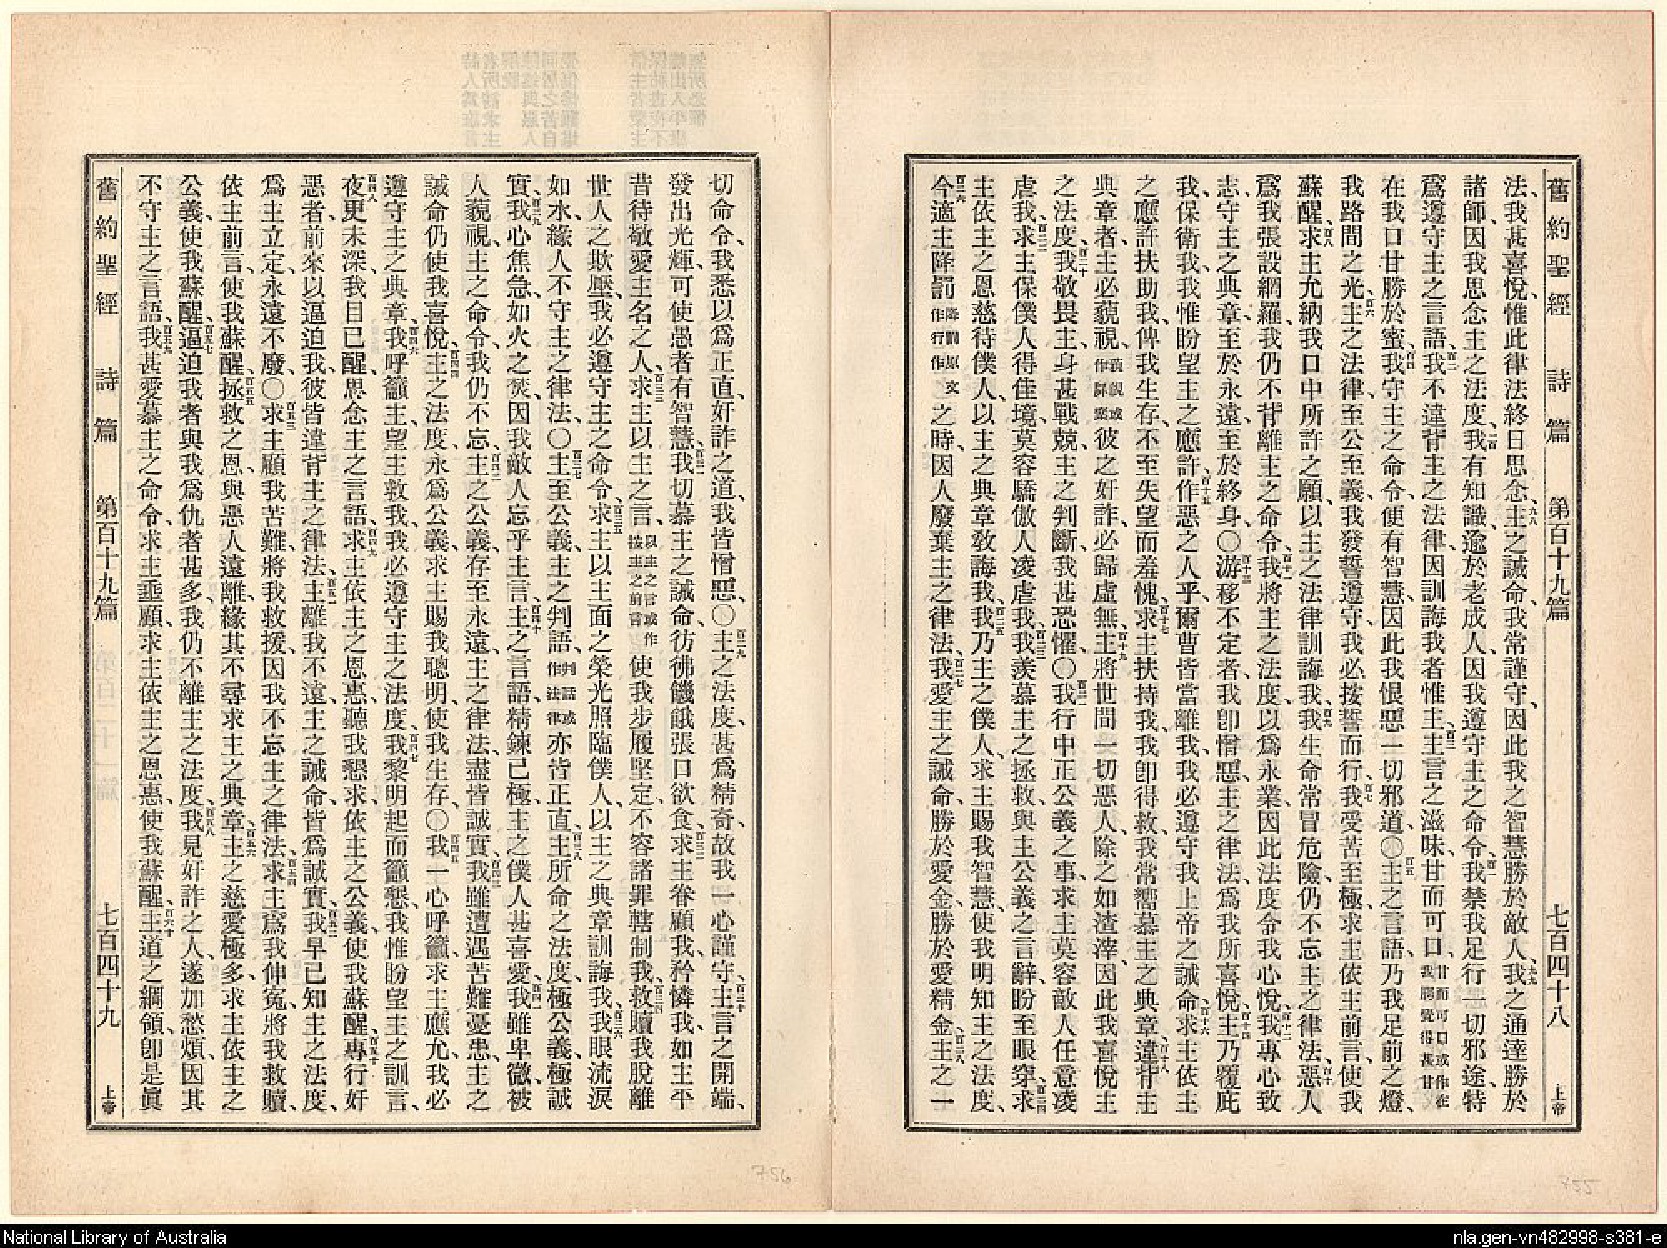 舊約聖經 詩篇 第百十九篇 七百四十八 上帝
法、我甚喜悅、惟此律法終日思念、主之誡命、我常謹守、因此我之智慧勝於敵人、我之通達勝於
諸師、因我思念主之法度、我有知識、逾於老成人、因我遵守主之命令、我禁我足行一切邪途、特
爲遵守主之言語、我不違背主之法律、因訓誨我者惟主、主言之滋味、甘而可口、甘而可口或作在我膓覺得甚甘
在我口甘勝於蜜、我守主之命令、便有智慧、因此我恨惡一切邪道、〇主之言語、乃我足前之燈、
我路間之光、主之法律至公至義、我發誓遵守、我必按誓而行、我受苦至極、求主依主前言、使我
蘇醒、求主允納我口中所許之願、以主之法律訓誨我、我生命常冒危險、仍不忘主之律法、惡人
爲我張設網羅、我仍不背離主之命令、我將主之法度、以爲永業、因此法度令我心悅、我專心致
志、守主之典章、至於永遠、至於終身、〇游移不定者、我卽憎惡、主之律法、爲我所喜悅、主乃覆庇
我、保衛我、我惟盼望主之應許、作惡之人乎、爾曹皆當離我、我必遵守我上帝之誡命、求主依主
之應許扶助我、俾我生存、不至失望而羞愧、求主扶持我、我卽得救、我常嚮慕主之典章、違背主
典章者、主必藐視、藐視或作踩棄彼之奸詐、必歸虛無、主將世間一切惡人、除之如渣滓、因此我喜悅主
之法度、我敬畏主、身甚戰兢、主之判斷、我甚恐懼、〇我行中正公義之事、求主莫容敵人任意凌
虐我、求主保僕人得佳境、莫容驕傲人凌虐我、我羨慕主之拯救、與主公義之言辭、盼至眼穿、求
主依主之恩慈待僕人、以主之典章敎誨我、我乃主之僕人、求主賜我智慧、使我明知主之法度、
今適主降罰降罰原文作行作之時、因人廢棄主之律法、我愛主之誡命、勝於愛金、勝於愛精金、主之一
切命令、我悉以爲正直、奸詐之道、我皆憎惡、〇主之法度、甚爲精奇、故我一心謹守、主言之開端、
發出光輝、可使愚者有智慧、我切慕主之誡命、彷彿饑餓張口欲食、求主眷顧我、矜憐我、如主平
昔待敬愛主名之人、求主以主之言以主之言或作按主之前言使我步履堅定、不容諸罪轄制我、救贖我脫離
世人之欺壓、我必遵守主之命令、求主以主面之榮光照臨僕人、以主之典章訓誨我、我眼流淚
如水、緣人不守主之律法、〇主至公義、主之判語判語或作法律亦皆正直、主所命之法度、極公義極誠
實、我心焦急、如火之焚、因我敵人忘乎主言、主之言語、精鍊已極、主之僕人甚喜愛、我雖卑微、被
人藐視、主之命令、我仍不忘、主之公義、存至永遠、主之律法、盡皆誠實、我雖遭遇苦難憂患、主之
誡命仍使我喜悅、主之法度、永爲公義、求主賜我聰明、使我生存、〇我一心呼籲、求主應允、我必
遵守主之典章、我呼籲主、望主救我、我必遵守主之法度、我黎明起而籲懇、我惟盼望主之訓言、
夜更未深、我目已醒、思念主之言語、求主依主之恩惠聽我懇求、依主之公義、使我蘇醒、專行奸
惡者、前來以逼迫我、彼皆違背主之律法、主離我不遠、主之誡命、皆爲誠實、我早已知主之法度、
爲主立定、永遠不廢、〇求主顧我苦難、將我救援、因我不忘主之律法、求主爲我伸冤、將我救贖、
依主前言、使我蘇醒、拯救之恩、與惡人遠離、緣其不尋求主之典章、主之慈愛極多、求主依主之
公義、使我蘇醒、逼迫我者、與我爲仇者甚多、我仍不離主之法度、我見奸詐之人、遂加愁煩、因其
不守主之言語、我甚愛慕主之命令、求主垂顧、求主依主之恩惠、使我蘇醒、主道之綱領、卽是眞
舊約聖經 詩篇 第百十九篇 七百四十九 上帝
756
755
National Library of Australia
nla.gen-vn482998-s381-e